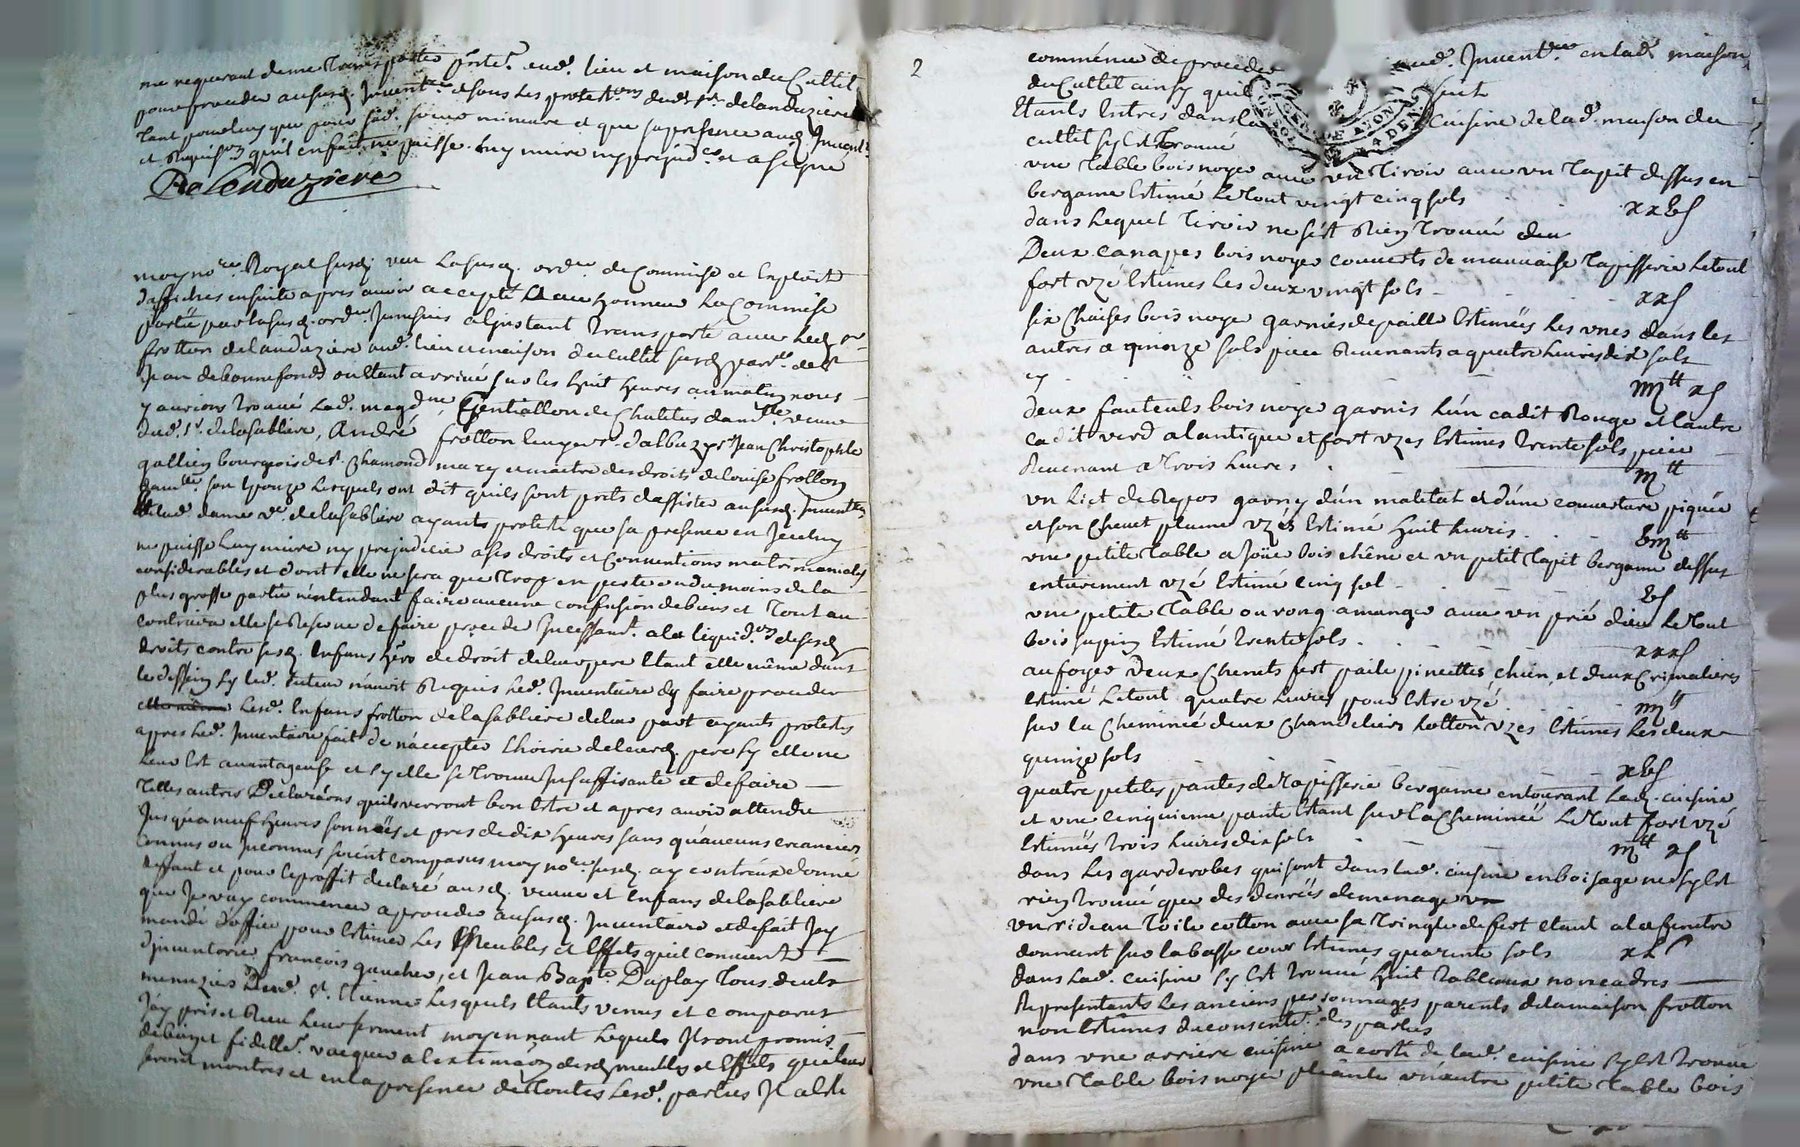 me requerant de me transporter presте.t aud. lieu et maison du Cultil
pour proceder au susd. Invent.re et sous les protest.ons dud. s.r delanduziere
tant pour luy que pour sad. soeur mineure et que sa presence aud. Invent.re
et Requis.on qu'il en fait ne puisse luy nuire ny prejud.er et a signé
De Lenduziere
moy no.re Royal susd. veu La susd. ord.ce de Commise et exploit
d'affiches ensuite apres avoir accepté et avec honneur La Commise
portée par la susd. ord.ce Jemesuis a l'instant transporté avec led. s.r
frotton delanduziere aud. lieu et maison du Cultil susd. parr.sse de s.t
Jean de bonnefonds ou etant arrivé sur les huit heures au matin nous
y aurions trouvé lad. magd.ne Gentiallon de Chatelus dam.lle veuve
dud. s.r de lasabliere, André frotton seigneur d'albuzy s.r Jean Christophle
gallien bourgeois de s.t Chamond mary et maitre des droits de louise frotton
dam.lle son epouze lesquels ont dit quils sont prets d'assister au susd. Inventaire
lad. dame v.ve de lasabliere ayants protesté que sa presence en Iceluy
ne puisse luy nuire ny prejudicier a ses droits et Conventions matrimoniales
considerables et dont elle ne sera que trop en perte ou du moins de la
plus grosse partie n'entendant faire aucune confusion de biens et tout au
contraire elle se Reserve de faire proceder Incessam.t a la liquid.on de sesd.
droits contre sesd. enfans her.s de droit de leur pere etant elle même dans
le dessein sy led. tuteur n'avoit Requis led. Inventaire dy faire proceder
Lesd. enfans frotton de lasabliere de leur part ayants protesté
apres led. Inventaire fait de n'accepter L'hoirie de leurd. pere sy elle ne
leur est avantageuse et sy elle se trouve Insuffisante et de faire
telles autres Declaraons quils verront bon estre et apres avoir attendu
Jusqu'a neuf heures sonnées et pres de dix heures sans qu'aucuns creanciers
connus ou Inconnus soient comparus moy no.re susd. ay contr'eux donné
deffaut et pour le proffit declaré ausd. veuve et enfans de lasabliere
que Je vay commencer a proceder au susd. Inventaire et de fait J'ay
mandé d'office pour estimer Les Meubles et Effets qu'il convient
d'inventorier francois gaucher, et Jean Bap.te Duplay tous deux
menuziers Dud. s.t Etienne lesquels etants venus et comparus
J'ay pris et Receu leur serment moyennant Lequel Ils ont promis
de bien et fidelle.t vacquer a l'estimaon desd. meubles et Effets qui leur
seront montrés et en la presence de toutes Lesd. parties Il a eté
2
commencé de proceder aud. Invent.re en lad. maison
du Cultil ainsy quil suit
Etants entrés dans la cuisine de lad. maison du
cultil sy est trouvé
une table bois noyer avec un tiroir avec un tapit dessus en
bergame Estimé Le tout vingt cinq sols
xxv s
dans Lequel tiroir ne s'est Rien trouvé
Deux canapés bois noyer couverts de mauvaise tapisserie Le tout
fort uzé Estimés Les deux vingt sols
xx s
six Chaises bois noyer garnies de paille Estimées Les unes dans les
autres a quinze sols piece Revenants a quatre livres dix sols
cy
iiij tt x s
deux fauteuls bois noyer garnis L'un cadit Rouge et L'autre
cadit verd a l'antique et fort uzes Estimés trente sols piece
Revenant a trois livres
iij tt
un Lict de Repos garny d'un matelat et d'une couverture piquée
et son Chevet plume uzés Estimé huit livres
viij tt
une petite table a Joüer bois chêne et un petit tapit bergame dessus
entierement uzé Estimé cinq sol
v s
une petite table ou rong a manger avec un prié dieu Le tout
bois sapin Estimé trente sols
xxx s
au foyer Deux Chenets fert paile pincettes chien, et deux Crimalieres
Estimé Le tout quatre livres pour Estre uzé
iiij tt
sur la Cheminée deux Chandeliers Lotton uzes Estimés Les deux
quinze sols
xv s
quatre petites pantes de tapisserie bergame entourant Lad. cuisine
et une cinquieme pante Etant sur la Cheminée Le tout fort uzé
Estimées trois livres dix sols
iij tt x s
dans Les garderobes qui sont dans lad. cuisine en boisage ne sy est
rien trouvé que des denrées de menage
un rideau toile cotton avec sa tringle de fert etant a la fenetre
donnant sur la basse cour Estimés quarante sols
xL s
dans Lad. cuisine sy Est trouvé huit tableaux non cadrés
Representants Les anciens personnages parents de la maison frotton
non Estimés du consente.t des parties
dans une arriere cuisine a coté de lad. cuisine sy Est trouvé
une table bois noyer pliante un'autre petite table bois